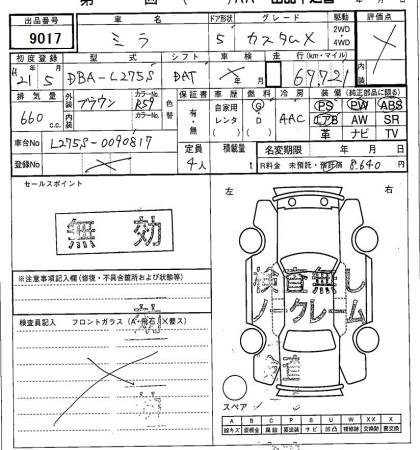 出品番号 車名 ドア形状 グレード 駆動 評価点
9017 ミラ 5 カスタムX 2WD・4WD
初度登録 型式 シフト 車検 走行(km・マイル) 内装
21年5月 DBA-L275S DAT 年月 67,721
排気量 外装 カラーNo. 色替 保証書 車歴 燃料 冷房 装備(純正部品に限る)
660 c.c. ブラウン R59 有・無 自家用 レンタ G D AAC PS PW ABS
内装 カラーNo. エアB AW SR
革 ナビ TV
車台No L275S-0090817 定員 積載量 名変期限 年月日
登録No 4人 t R料金 未預託・預託済 8,640円
セールスポイント
左 右
無効
※注意事項記入欄(修復・不具合箇所および状態等)
検査無し
ノークレーム
検査員記入 フロントガラス(A・飛石・X要ス)
スペア
A B C P S U W XX X
線キズ 要板金 腐食 要塗装 サビ 凹凸 補修跡 交換跡 要交換